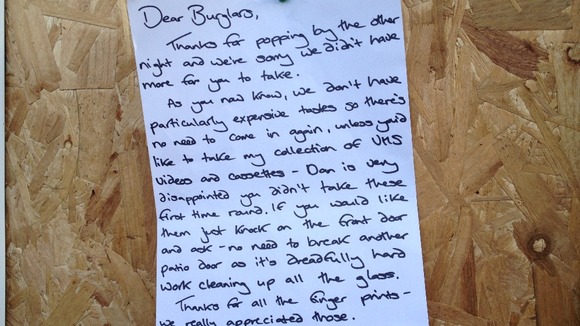 Dear Burglars,
Thanks for popping by the other
night and we're sorry we didn't have
more for you to take.
As you now know, we don't have
particularly expensive tastes so there's
no need to come in again, unless you'd
like to take my collection of VHS
videos and cassettes - Dan is very
disappointed you didn't take these
first time round. If you would like
them just knock on the front door
and ask - no need to break another
patio door as it's dreadfully hard
work cleaning up all the glass.
Thanks for all the finger prints -
we really appreciated those.